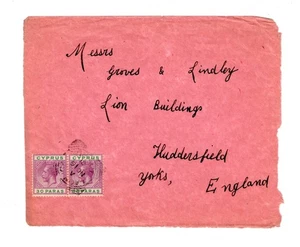 Messrs
Groves & Lindley
Lion Buildings
Huddersfield
Yorks,
England
CYPRUS CYPRUS
30 PARAS 30 PARAS